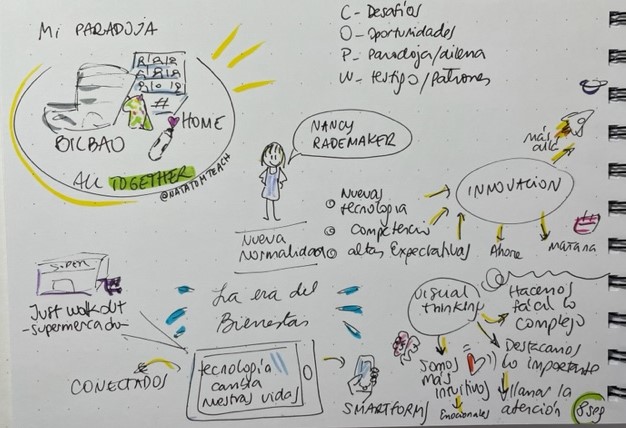 Mi PARADOJA
C- Desafíos
O- Oportunidades
P- Paradoja/dilema
W- testigo/Patrones
#
HOME
BILBAO
ALL TOGETHER
@NATATOMTEACH
NANCY
RADEMAKER
NUEVA
NORMALIDAD
Nuevas
tecnología
competencia
altas Expectativas
INNOVACIÓN
más
allá
Ahora
Mañana
SUPER
Just walkout
-supermercado-
La era del
Bienestar
CONECTADOS
tecnología
cambia
nuestras vidas
SMARTFORMS
VISUAL
THINKING
Hacemos
fácil lo
complejo
Destacamos
lo importante
Somos
más
intuitivos
Emocionales
llamar la
atención
8seg